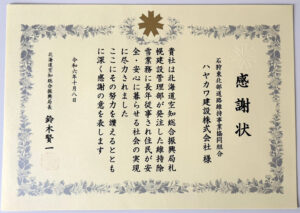 感謝状
石狩東北部道路維持事業協同組合
ハヤカワ建設株式会社 様
貴社は北海道空知総合振興局札
幌建設管理部が発注した維持除
雪業務に長年従事され住民が安
全・安心に暮らせる社会の実現
に尽力されました
ここにその努力を讃えるととも
に深く感謝の意を表します
令和六年十月八日
北海道空知総合振興局長
鈴木賢一